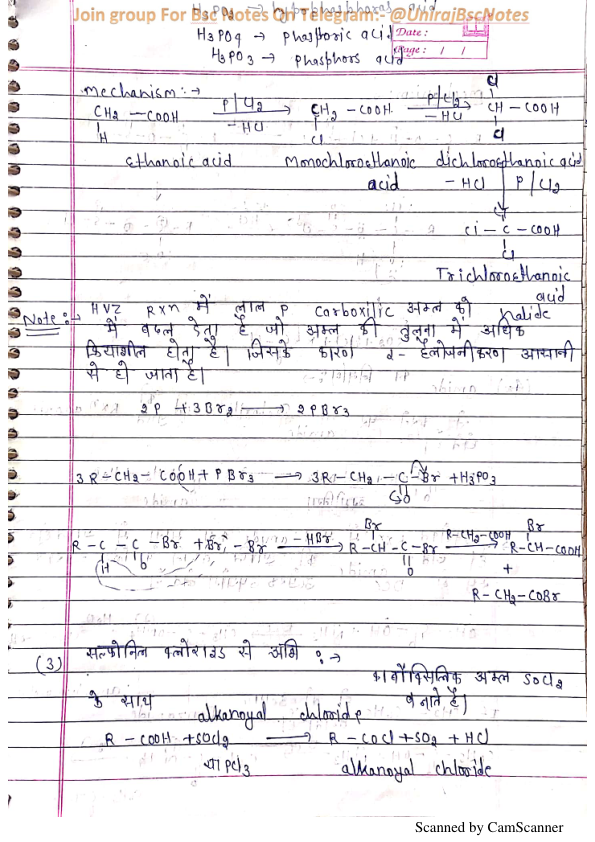 Join group For Bsc Notes On Telegram:- @UnirajBscNotes
H3PO4 → phasphoric acid
Date :
H3PO3 → phasphors acid
Page : / /
mechanism :→
CH2 – COOH P/Cl2 → – HCl CH2 – COOH P/Cl2 → – HCl CH – COOH
H Cl Cl Cl
Ethanoic acid Monochloroethanoic acid dichloroethanoic acid
– HCl P/Cl2
Cl – C – COOH
Cl
Trichloroethanoic acid
Note :→ HVZ Rxn में लाल P carboxilic अम्ल को halide
में बदल देता है जो अम्ल की तुलना में अधिक
क्रियाशील होता है। जिसके कारण 2 - हैलोजनीकरण आसानी
से हो जाता है।
2P + 3Br2 → 2PBr3
3R – CH2 – COOH + PBr3 → 3R – CH2 – C – Br + H3PO3
O
R – C – C – Br + Br – Br – HBr → R – CH – C – Br R-CH2-COOH → R – CH – COOH
H O Br O Br
+
R – CH2 – COBr
(3) सल्फोनिल क्लोराइड से अभि :→
कार्बोक्सिलिक अम्ल SOCl2
के साथ alkanoyal chloride बनाते है।
R – COOH + SOCl2 → R – COCl + SO2 + HCl
या PCl3 alkanoyal chloride
Scanned by CamScanner